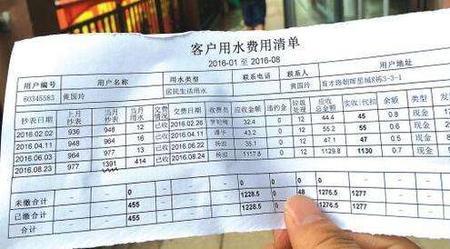 客户用水费用清单
2016-01 至 2016-08
用户编号 用户名称 用水类型 联系电话 联系人 用户地址
60345583 黄国玲 居民生活用水 黄国玲 育才路朝晖星城B栋3-3-1
抄表日期 上月抄表 当月抄表 当月用水 交费情况 交费日期 收费员 应收金额 违约金 垃圾处理 应收总金额 实收/代扣 余额 类型
2016.02.02 936 948 12 已收 2016.02.26 32.4 0 12 44.4 45 0.8 现金
2016.04.11 948 964 16 已收 2016.04.26 43.2 0 12 55.2 55 现金
2016.06.03 964 977 13 已收 2016.06.28 35.1 0 12 47.1 47 0.5 现金
2016.08.23 977 1391 414 已收 2016.08.24 1117.8 0 12 1129.8 1130 0.7 现金
未缴合计 0 0 0 0 0
已缴合计 455 1228.5 0 48 1276.5 1277
合计 455 1228.5 0 1276.5 1277